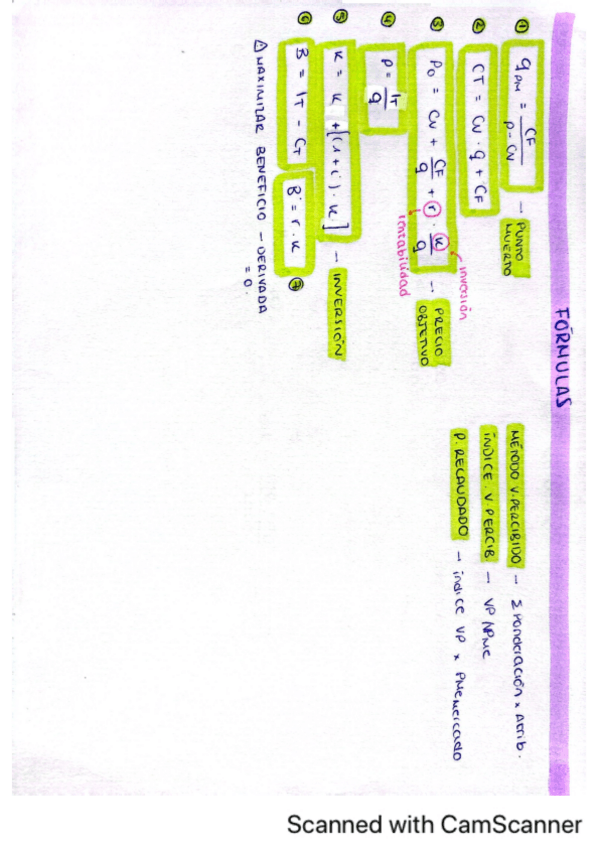 FÓRMULAS
① q PM = CF / p - Cv → PUNTO MUERTO
② CT = Cv · q + CF
③ Po = Cv + CF / q + r · K / q → PRECIO OBJETIVO
inversión
rentabilidad
④ P = IT / q
⑤ K = K + [(1+i) · K] → INVERSIÓN
⑥ B = IT - CT
B = r · K ⑦
⚠ MAXIMIZAR BENEFICIO - DERIVADA = 0.
MÉTODO V. PERCIBIDO → Σ Ponderación x Atrib.
ÍNDICE V. PERCIB. → VP /VPMe
P. RECAUDADO → índice VP x PMe mercado
Scanned with CamScanner